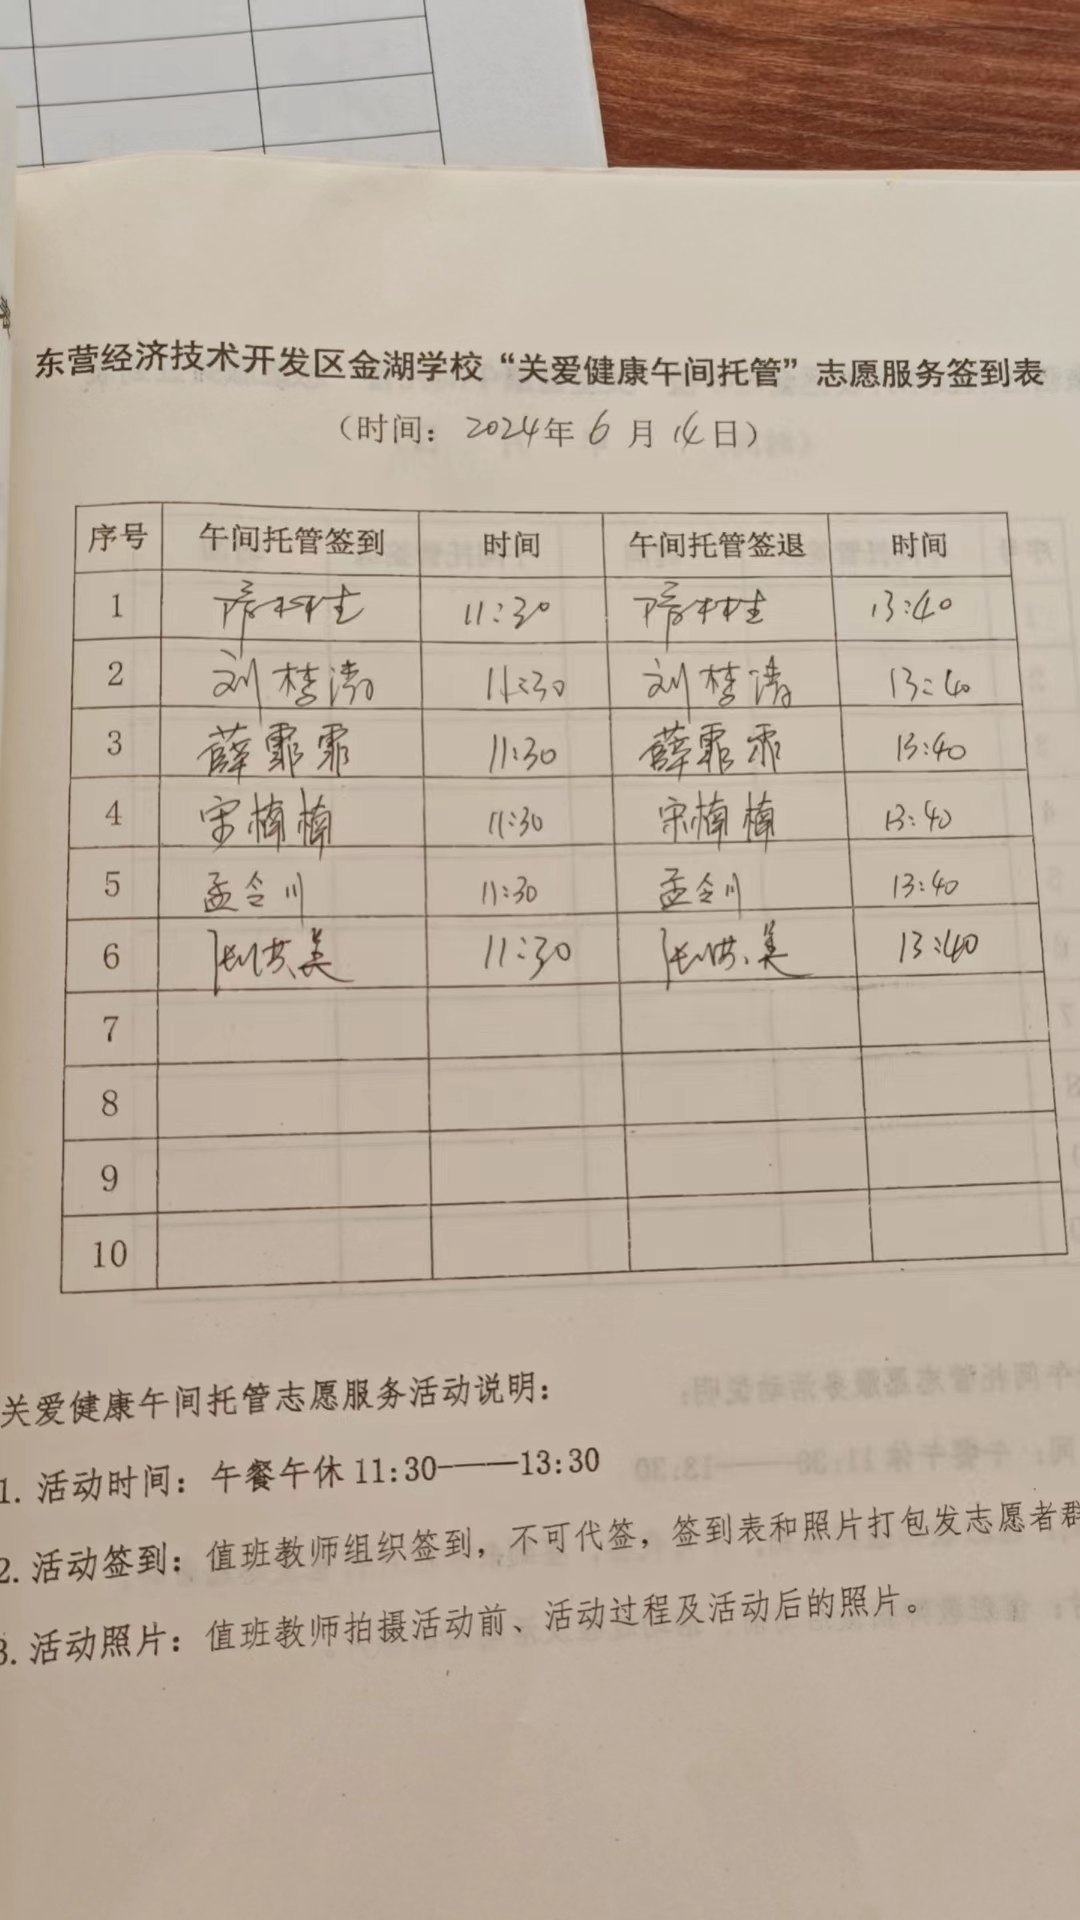 东营经济技术开发区金湖学校“关爱健康午间托管”志愿服务签到表
（时间：2024年6月14日）
序号 午间托管签到 时间 午间托管签退 时间
1 11:30 13:40
2 刘梦涛 11:30 刘梦涛 13:40
3 薛霏霏 11:30 薛霏霏 13:40
4 宋楠楠 11:30 宋楠楠 13:40
5 孟令川 11:30 孟令川 13:40
6 张洪美 11:30 张洪美 13:40
7
8
9
10
关爱健康午间托管志愿服务活动说明：
1. 活动时间：午餐午休 11:30——13:30
2. 活动签到：值班教师组织签到，不可代签，签到表和照片打包发志愿者群
3. 活动照片：值班教师拍摄活动前、活动过程及活动后的照片。